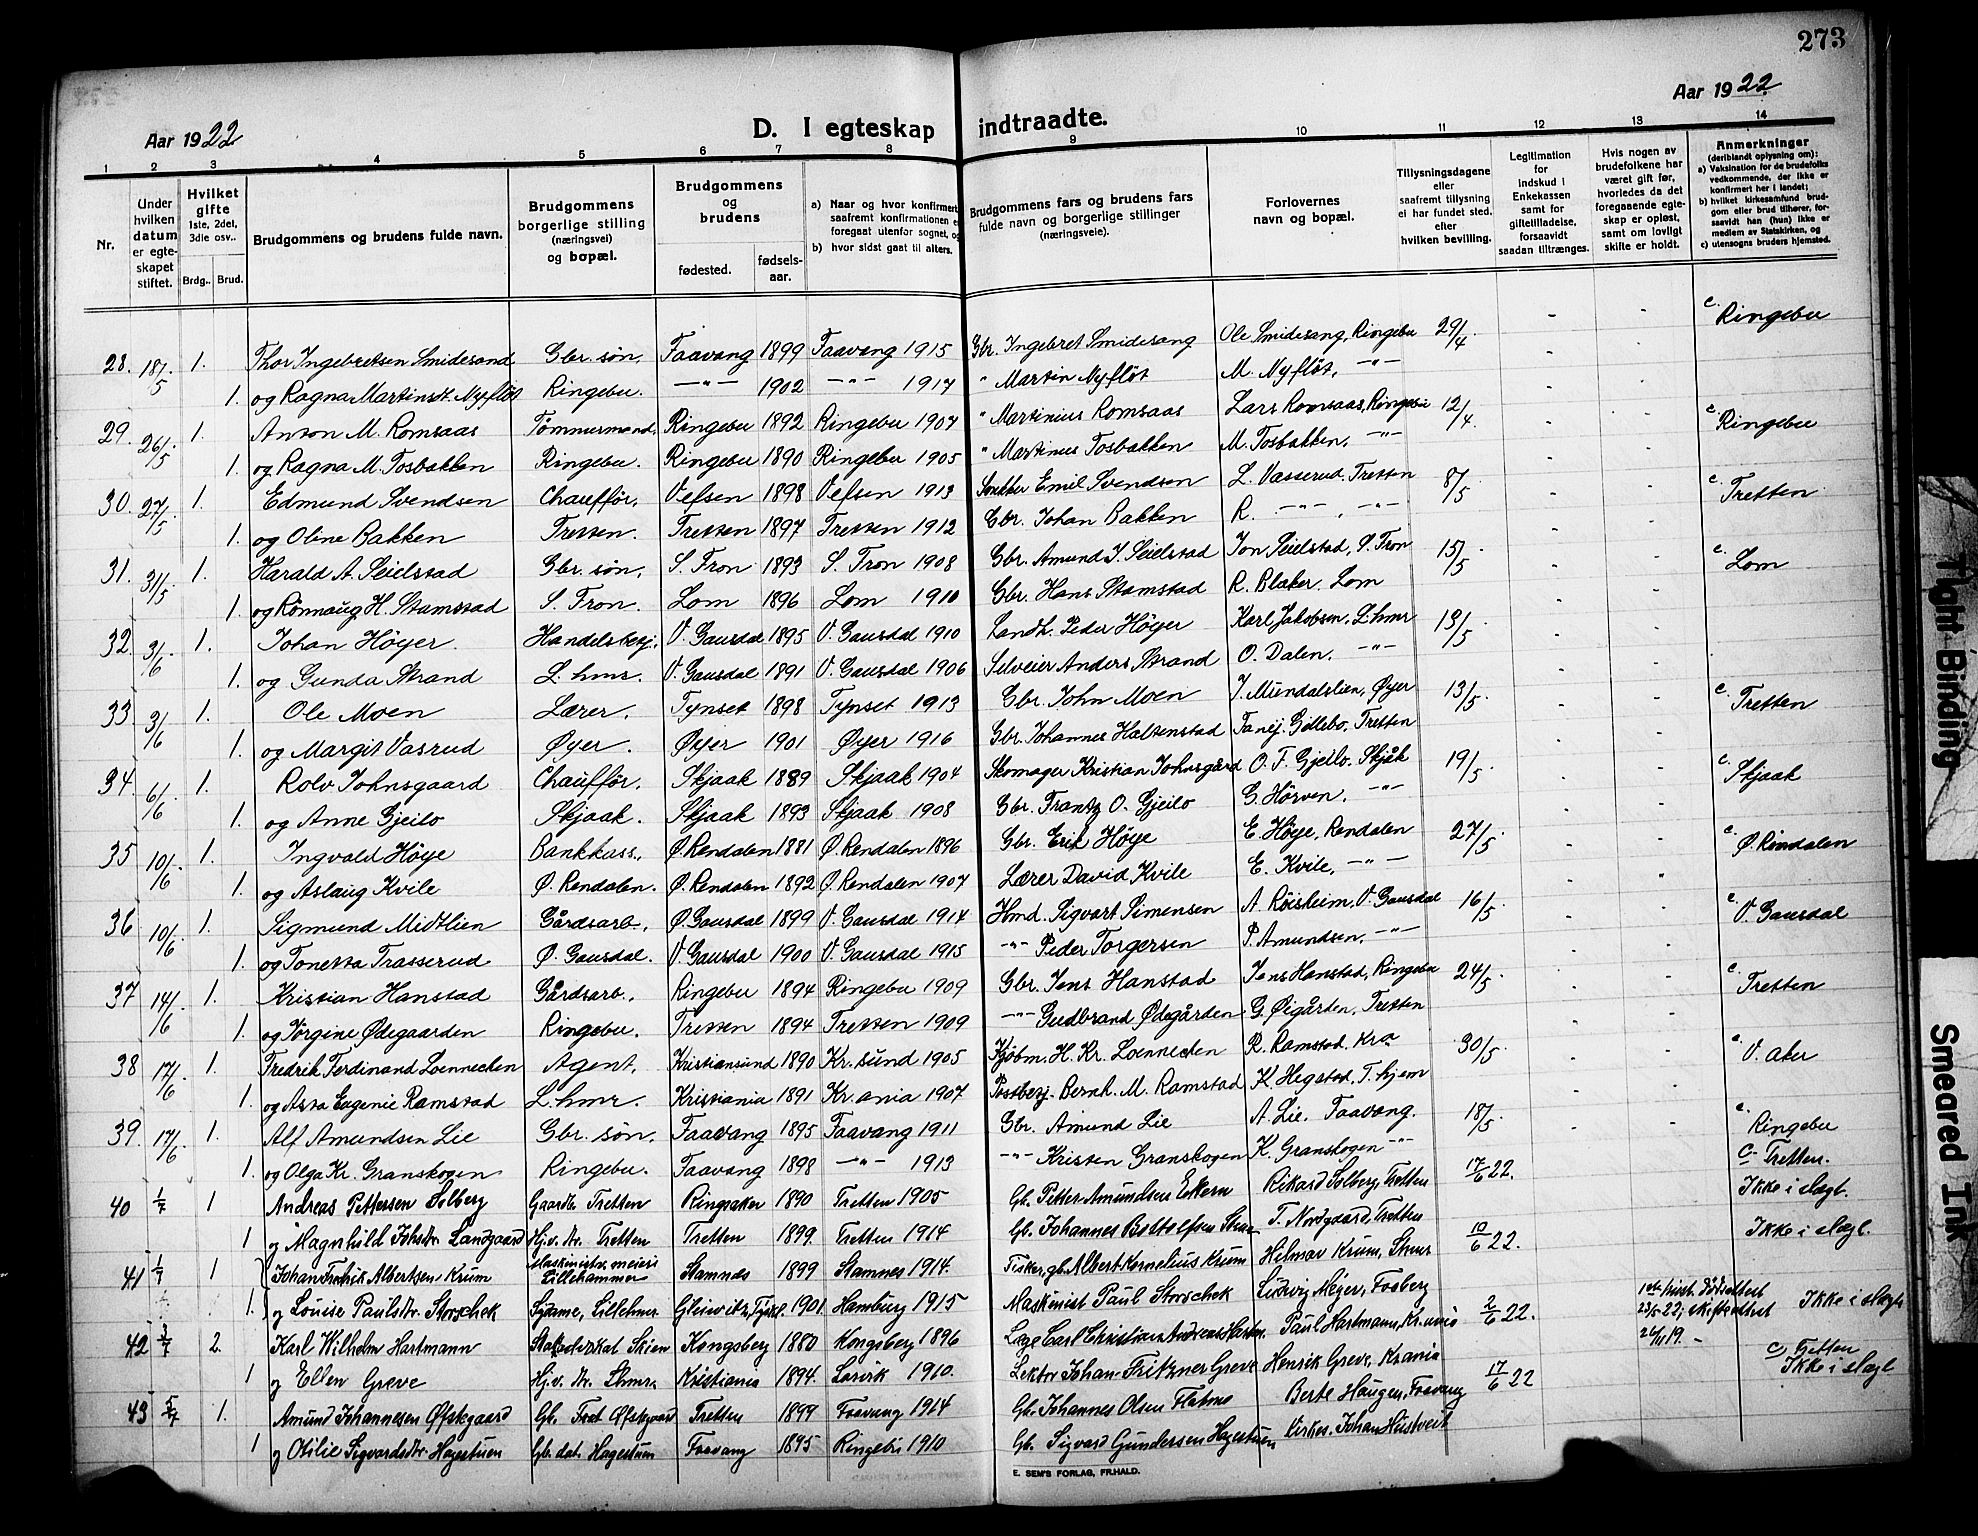 273
Aar 1922
Aar 1922
D. I egteskap indtraadte.
1 2 3 4 5 6 7 8 9 10 11 12 13 14
Nr.
Under hvilken datum er egteskapet stiftet.
Hvilket gifte 1ste, 2det, 3die osv.. Brdg.. Brud.
Brudgommens og brudens fulde navn.
Brudgommens borgerlige stilling (næringsvei) og bopæl.
Brudgommens og brudens fødested. fødsels-aar.
a) Naar og hvor konfirmert, saafremt konfirmationen er foregaat utenfor sognet, og b) hvor sidst gaat til alters.
Brudgommens fars og brudens fars fulde navn og borgerlige stillinger (næringsveie).
Forlovernes navn og bopæl.
Tillysningsdagene eller saafremt tillysning ei har fundet sted, efter hvilken bevilling.
Legitimation for Indskud i Enkekassen samt for giftetilladelse, forsaavidt saadan tiltrænges.
Hvis nogen av brudefolkene har været gift før, hvorledes da det foregaaende egteskap er opløst, samt om lovligt skifte er holdt.
Anmerkninger (deriblandt oplysning om): a) Vaksination for de brudefolks vedkommende, der ikke er konfirmert her i landet; b) hvilket kirkesamfund brudgom eller brud tilhører, forsaavidt han (hun) ikke er medlem av Statskirken, og c) utensogns bruders hjemsted.
28. 18/5 1. Thor Ingebretsen Smidesand Gbr. søn, Faavang 1899 Faavang 1915 Gbr. Ingebret Smidesang Ole Smidesang, Ringebu 29/4 - - c. Ringebu
1. og Ragna Martinsdt. Nyfløt Ringebu. —"— 1902 —"— 1917 " Martin Nyfløt M. Nyfløt, —"—
29. 26/5 1. Anton M. Romsaas Tømmermand, Ringebu 1892 Ringebu 1907 " Martinius Romsaas Lars Romsaas, Ringebu 12/4 c. Ringebu
1. og Ragna M. Tosbakken Ringebu. Ringebu 1890 Ringebu 1905 " Martinus Tosbakken M. Tosbakken, —"—
30. 27/5 1. Edmund Svendsen Chauffør, Vefsen 1898 Vefsen 1913 Snekker Emil Svendsen L. Vasserud, Tretten 8/5 c. Tretten
1. og Oline Bakken Tretten. Tretten 1897 Tretten 1912 Gbr. Johan Bakken R. —"—, —"—
31. 31/5 1. Harald A. Seielstad Gbr. søn, S. Fron 1893 S. Fron 1908 Gbr. Amund J. Seielstad Jon Seielstad, S. Fron 15/5 c. Lom
1. og Rønnaug H. Stamstad S. Fron. Lom 1896 Lom 1910 Gbr. Hans Stamstad R. Blaker, Lom
32. 3/6 1. Johan Høyer. Handelsbetj. V. Gausdal 1895 V. Gausdal 1910 Landh. Peder Høyer Karl Jakobsen, L.hmr 13/5
1. og Gunda Strand L. hmr. V. Gausdal 1891 V. Gausdal 1906 Selveier Anders Strand O. Dalen, —"—
33 3/6 1. Ole Moen Lærer, Tynset 1898 Tynset 1913 Gbr. John Moen J. Mundalslien, Øyer 13/5 c. Tretten
1. og Margit Vasrud Øyer. Øyer 1901 Øyer 1916 Gbr. Johannes Holtenstad Gillebo, Tretten
34 6/6 1. Rolv Johnsgaard Chauffør, Skjaak 1889 Skjaak 1904 Skomager Kristian Johnsgård O. F. Gjeilo, Skjåk 19/5 c. Skjaak
1. og Anne Gjeilo Skjaak. Skjaak 1893 Skjaak 1908 Gbr. Frantz O. Gjeilo G. Hørven, —"—
35 10/6 1. Ingvald Høye Bankkass., Ø. Rendalen 1881 Ø. Rendalen 1896 Gbr. Erik Høye E. Høye, Rendalen 27/5 c. Ø. Rendalen
1. og Aslaug Kvile Ø. Rendalen. Ø. Rendalen 1892 Ø. Rendalen 1907 Lærer David Kvile E. Kvile, —"—
36 10/6 1. Sigmund Midtlien Gårdsarb., Ø. Gausdal 1899 V. Gausdal 1914 Hmd. Sigvart Simensen A. Røisheim, V. Gausdal 16/5 c. V. Gausdal
1. og Tonetta Trasserud Ø. Gausdal. V. Gausdal 1900 V. Gausdal 1915 —"— Peder Torgersen P. Amundsen, —"—
37 14/6 1. Kristian Hanstad Gårdsarb., Ringebu 1894 Ringebu 1909 Gbr. Jens Hanstad Jens Hanstad, Ringebu 24/5 c. Tretten
1. og Jørgine Ødegaarden Ringebu. Tretten 1894 Tretten 1909 —"— Gudbrand Ødegården G. Øigården, Tretten
38 17/6 1. Fredrik Ferdinand Loennecken Agent, Kristiansund 1890 Kr. sund 1905 Kjøbm. H. Kr. Loennecken R. Ramstad, Kra 30/5 c. V. Aker
1. og Asta Eugenie Ramstad L. hmr. Kristiania 1891 Kr. ania 1907 Postbetj. Bernh. M. Ramstad K. Hegstad, T. hjem
39 17/6 1. Alf Amundsen Lie Gbr. søn, Faavang 1895 Faavang 1911 Gbr. Amund Lie A. Lie, Faavang. 18/5 c. Ringebu
1. og Olga Kr. Granskogen Ringebu. Faavang 1898 —"— 1913 —"— Kristen Granskogen K. Granskogen —"—
40 1/7 1 Andreas Pettersen Solberg Gaardb. Tretten Ringsaker 1890 Tretten 1905 Gb. Petter Amundsen Ekern Rikard Solberg, Tretten 17/6 22. c. Tretten. Ikke i slagt.
1 og Magnhild Johsdtr. Landgaard Hj.v. dtr. Tretten Tretten 1899. Tretten 1914 Gb. Johannes Bottolfsen T. Nordgaard, Tretten
41 1/7 1 Johan Fredrik Albertsen Krum Maskinist v. meieri Lillehammer Stamnes 1899 Stamnes 1914. Fisker, gb. Albert Kornelius Krum Hilmar Krum, 10/6 22. Ikke i slægt.
1. og Louise Paulsdtr. Storschek Sydame, Lillehmr Gleiwitz, Tyskl. 1901. Hamburg 1915 Maskinist Paul Storschek Ludvig Meyer, Fosberg
42 3/7 2. Karl Wilhelm Hartmann Skien Kongsberg 1880 Kongsberg 1896 Læge Carl Christian Andreas Paul Hartmann, Kr.ania 2/6 22. 26/11 19. - Ikke i slægt
1 og Ellen Greve Hj.v. dtr. Lhmr. Kristiania 1894. Larvik 1910. Lektor Johan Fritzner Greve Henrik Greve, Krania
43 5/7 1. Amund Johannesen Øfstegaard Gb. Øfstegaard Tretten 1899 Faavang 1914 Gb. Johannes Olsen Berte Haugen, Faavang 17/6 22 c) Tretten Ikke i slægt
1 og Otilie Sigvardsdtr. Hagestuen Gb. dat. Hagestuen Faavang 1895 Ringebu 1910 Gb. Sigvard Gundersen Hagestuen Kirkes. Johan Hustveit
E. SEM'S FORLAG, FR.HALD.
Tight Binding
Smeared Ink